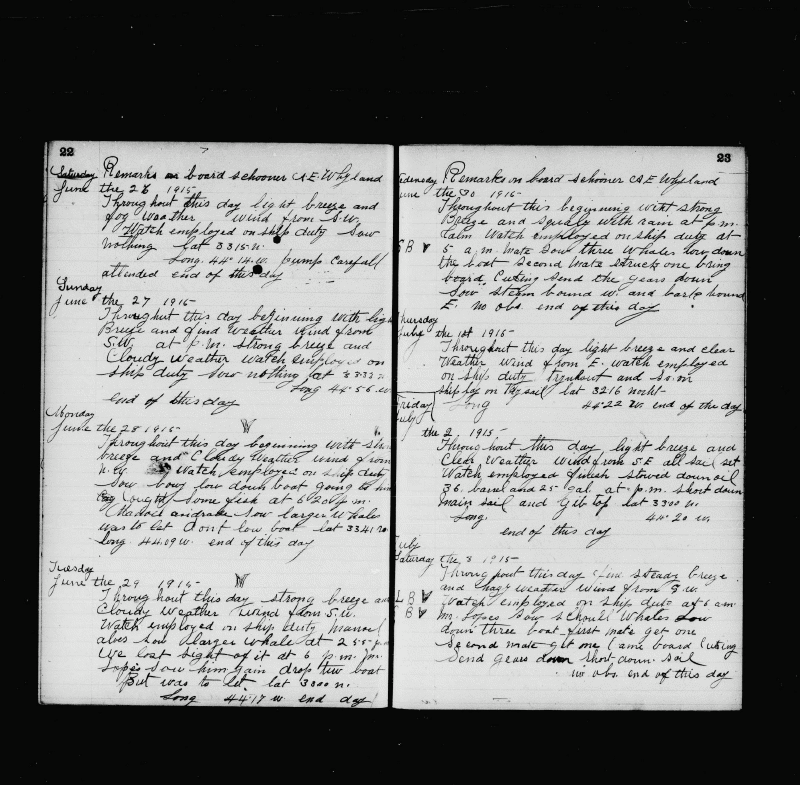 22
Saturday Remarks on board schooner A.E. Whyland
June the 26 1915
Throughout this day light breeze and
fog weather wind from S.W.
Watch employed on ship duty Saw
nothing lat 3315 n.
Long. 44° 14. w. pump carefull
attended end of this day
Sunday
June the 27 1915
Throughout this day beginning with ligh
Breeze and find weather wind from
S.W. at p.m. strong breeze and
Cloudy weather watch employed on
ship duty Saw nothing at 3333 n
Long 44°56. w
end of this day
Monday
June the 28 1915
Throughout this day beginning with str
breeze and Cloudy weather wind from
n.W. Watch employed on ship duty
Saw bowy low down boat going to
Caught Some fish at 6 20 p.m.
Saw larger Whales
was to let dont low boat lat 3341 n.
Long. 4409 w. end of this day
Tuesday
June the 29 1915
Throughout this day strong breeze and
Cloudy weather wind from S.W.
Watch employed on ship duty manuel
alves Saw larger whale at 2 55 p.m
We lost sight of it at 6 p.m. jm.
Lopes Saw him gain drop tow boat
But was to let. lat 3300 n.
Long 44°17 w. end day
23
Wednesday Remarks on board schooner A.E Whyland
June the 30 1915
Throughout this beginning witht strong
Breeze and squaly with rain at p.m.
calm Watch employed on ship duty at
S B 5 a.m. mate Saw three Whales low down
the boat Second Mate struck one bring
board Cuting Send the gears down
Saw steam bound w. and bark hound
E. no obs. end of this day
Thursday
July the 1st 1915
Throughout this day light breeze and clear
Weather wind from E. watch employed
on ship duty and
on sail lat 3216 north
Long 44°22 w. end of the day
Friday
July
the 2. 1915
Throughout this day light breeze and
Clear Weather wind from S.E all sail set
Watch employed finish stowed down oil
36. barrel and 25 gal. at p.m. short down
main sail and lat 3300 n.
Long. 44° 20 w.
end of this day
July
Saturday the 3 1915
Throughout this day find steady breeze
and hazy weather wind from S.w.
L B Watch employed on ship duty at 6 am
S B m. Lopes Saw school Whales low
down three boat first mate get one
Second mate get one Came board Cuting
Send gears down short down sail
no obs. end of this day